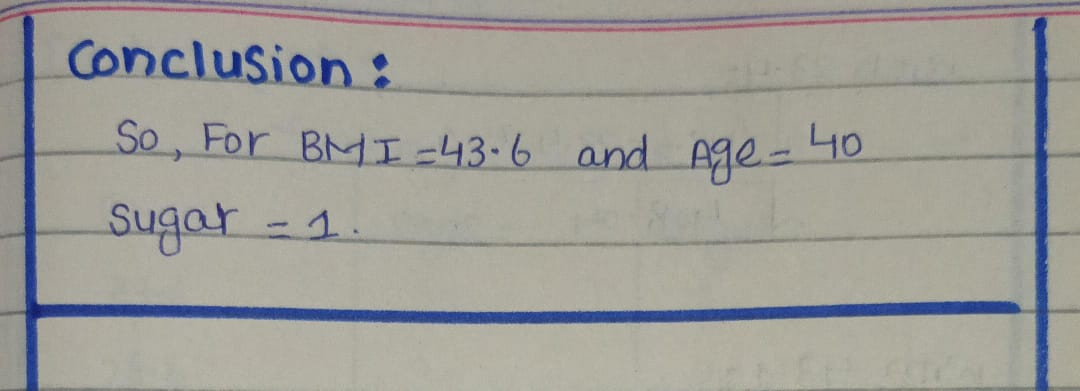 Conclusion :
So, For BMI = 43.6 and Age = 40
Sugar = 1.